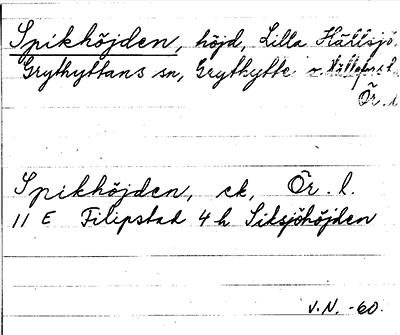 Spikhöjden, höjd, Lilla Hällsjö.
Grythyttans sn, Grythytte
Ör. l
Spikhöjden, ek, Ör. l.
11 E Filipstad 4 h Siksjöhöjden
V.N. -60.